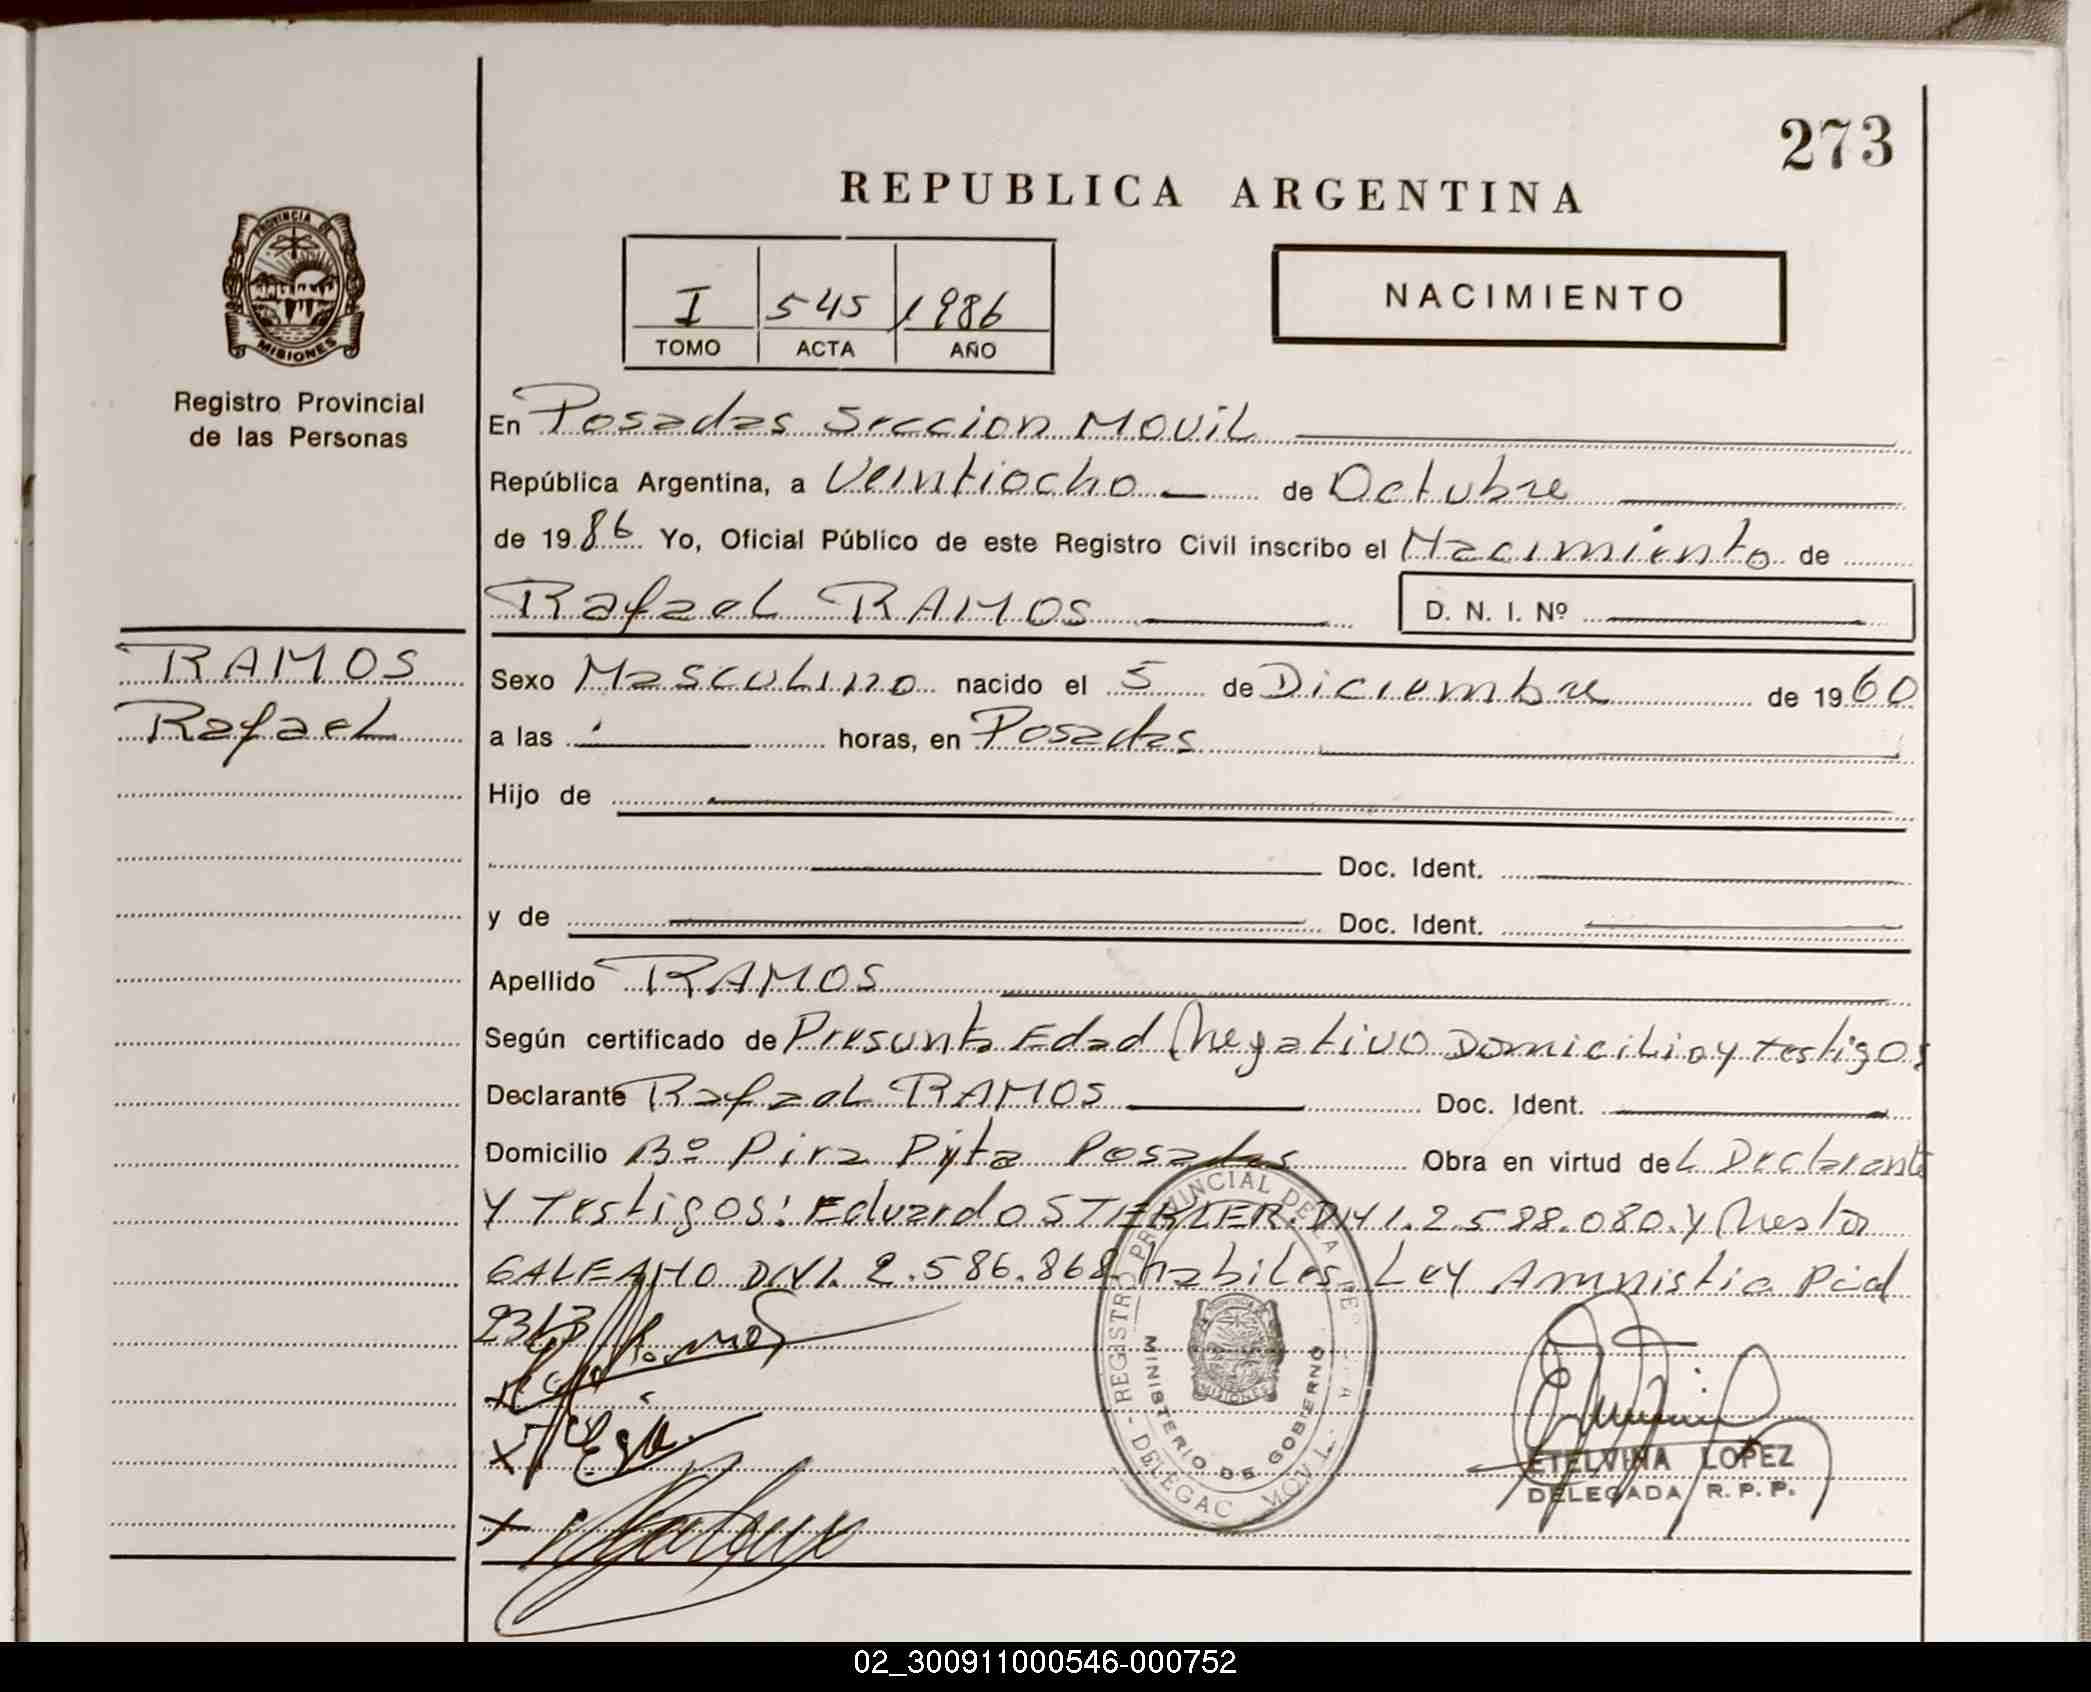 273
REPUBLICA ARGENTINA
PROVINCIA DE
MISIONES
Registro Provincial
de las Personas
I 545 1986
TOMO ACTA AÑO
NACIMIENTO
En Posadas Seccion Movil
República Argentina, a Veintiocho de Octubre
de 1986 Yo, Oficial Público de este Registro Civil inscribo el Nacimiento de
Rafael RAMOS D. N. I. Nº
RAMOS
Rafael
Sexo Masculino nacido el 5 de Diciembre de 1960
a las horas, en Posadas
Hijo de
Doc. Ident.
y de Doc. Ident.
Apellido RAMOS
Según certificado de Presunta Edad Negativo Domicilio y testigos
Declarante Rafael RAMOS Doc. Ident.
Domicilio Bº Pira Pyta Posadas Obra en virtud del Declarante
y Testigos: Eduardo DNI. 2.588.080. y Nestor
GALEANO DNI. 2.586.868 habiles Ley Amnistia Pcial
2313
REGISTRO PROVINCIAL DE LAS PE
MINISTERIO DE GOBIERNO
MISIONES
DELEGAC MOVIL
ETELVINA LOPEZ
DELEGADA R.P.P.
02_300911000546-000752